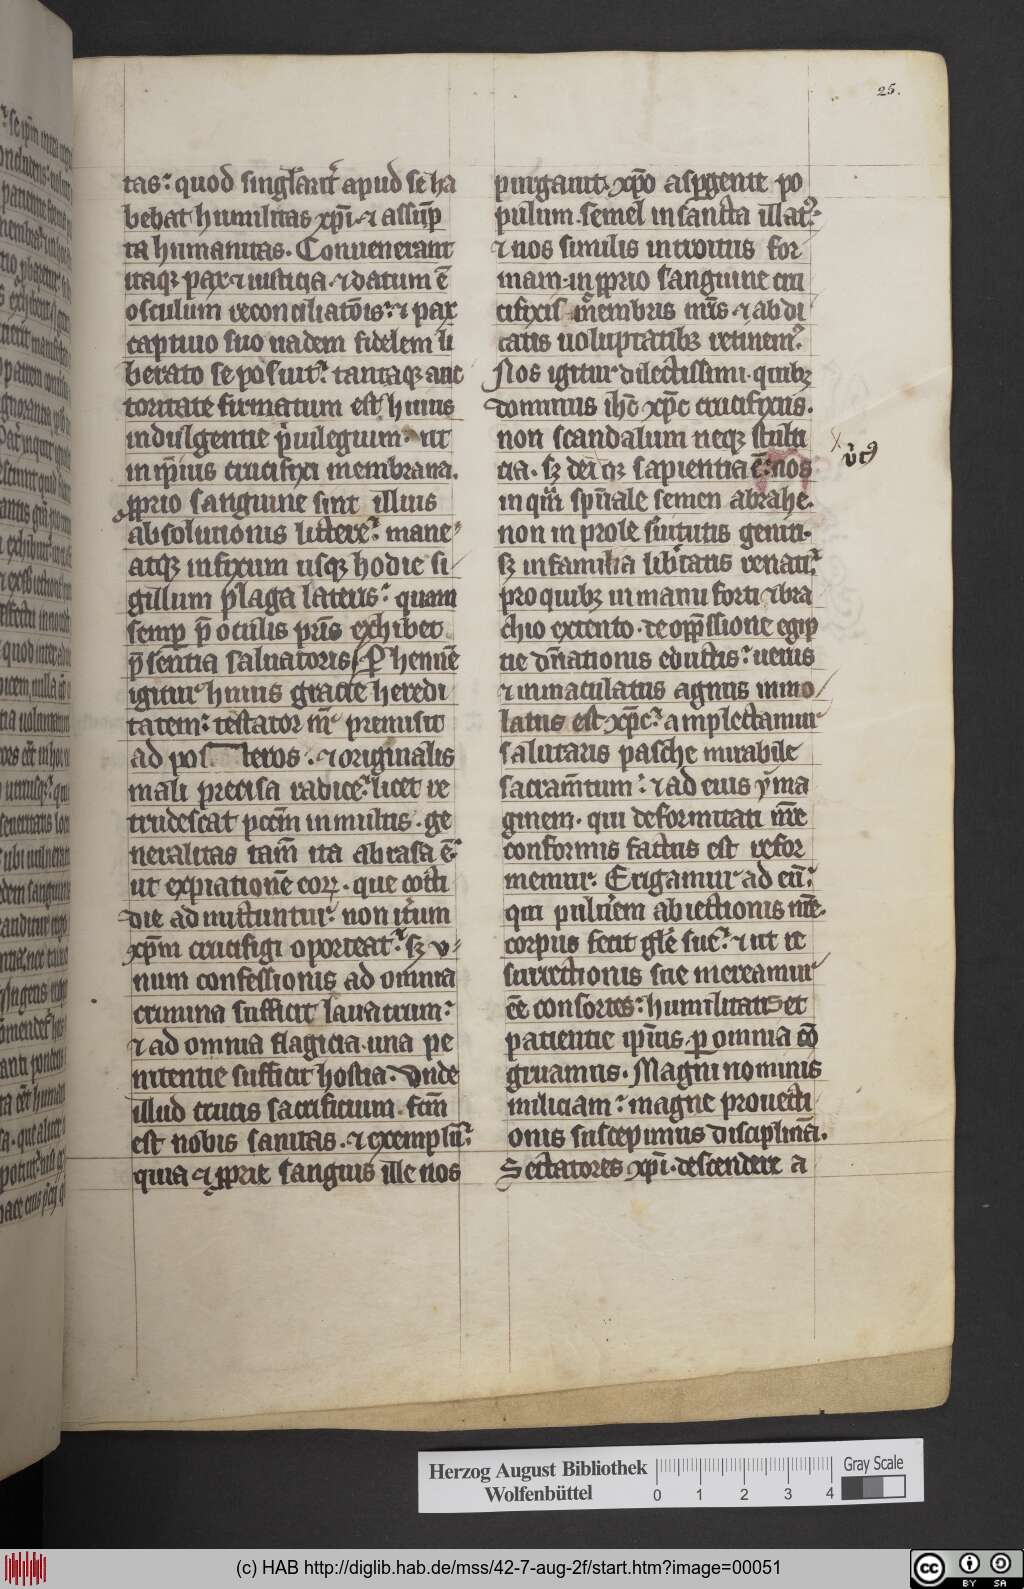 25.
tas: quod singlarit͛ apud se ha
bebat humilitas xp̄i. ⁊ assūp
ta humanitas. Conuenerant
itaqꝫ pax ⁊ iusticia. ⁊ datum ē
osculum reconciliatōis: ⁊ pax
captiuo suo uadem fidelem li
berato se posuit: tantaqꝫ auc
toritate firmatum est huius
indulgentie p̉uilegium. ut
in ip̄ius crucifixi membrana.
ꝓprio sanguine sint illius
absolutionis littere: mane⸗
atqꝫ infixum usqꝫ hodie si⸗
gillum plaga lateris: quam
semꝑ p̄ oculis pr̄is exhibet
p̄sentia saluatoris. Perhennē
igitur huius gracie heredi
tatem: testator nr̄ premisit
ad posteros. ⁊ originalis
mali precisa radice: licet re
crudescat pccm̄ in multis. ge
neralitas tam̄ ita abrasa ē:
ut expiationē eoꝝ. que cotti
die admittuntur non it̉um
xp̄m crucifigi oporteat: sꝫ v⸗
num confessionis ad omnia
crimina sufficit lauacrum:
⁊ ad omnia flagicia. una pe
nitentie sufficit hostia. Vnde
illud crucis sacrificium. fcm̄
est nobis sanitas. ⁊ exemplū:
quia ⁊ ꝓprie sanguis ille nos
purgauit. xp̄o aspgente po
pulum. semel in sancta illat᷒:
⁊ nos similis introitus for
mam. in ꝓprio sanguine cru
cifixis membris nr̄is. ⁊ abdi
catis uoluptatibꝫ retinem᷒.
Nos igitur dilectissimi. quibꝫ
dominus ih̄c xp̄c crucifixus.
non scandalum neqꝫ stulti
cia. sꝫ dei uirꝰ sapientia ē: nos
uirtꝰ
inqm̄ sp̄uale semen abrahe.
non in prole s̉uitutis geniti.
sꝫ in familia lib̉tatis renati:
pro quibꝫ in manu forti ⁊ bra
chio extento. de opp̄ssione egip
tie dn̄ationis eductis: uerus
⁊ inmaculatus agnus inmo
latus est xp̄c: amplectamur
salutaris pasche mirabile
sacram̄tum: ⁊ ad eius yma
ginem. qui deformitati nr̄e
conformis factus est refor
memur. Erigamur ad eū:
qui pulủem abiectionis nr̄e.
corpus fecit gl̄e sue: ⁊ ut re
surrectionis sue mereamur
ēe consortes: humilitati et
patientie ip̄ius. ꝑ omnia cō
gruamus. Magni nominis
miliciam: magne prouecti
onis suscepimus disciplinā.
Sectatores xp̄i. descendere a
Herzog August Bibliothek
Wolfenbüttel
0 1 2 3 4
Gray Scale
(c) HAB http://diglib.hab.de/mss/42-7-aug-2f/start.htm?image=00051
cc BY SA